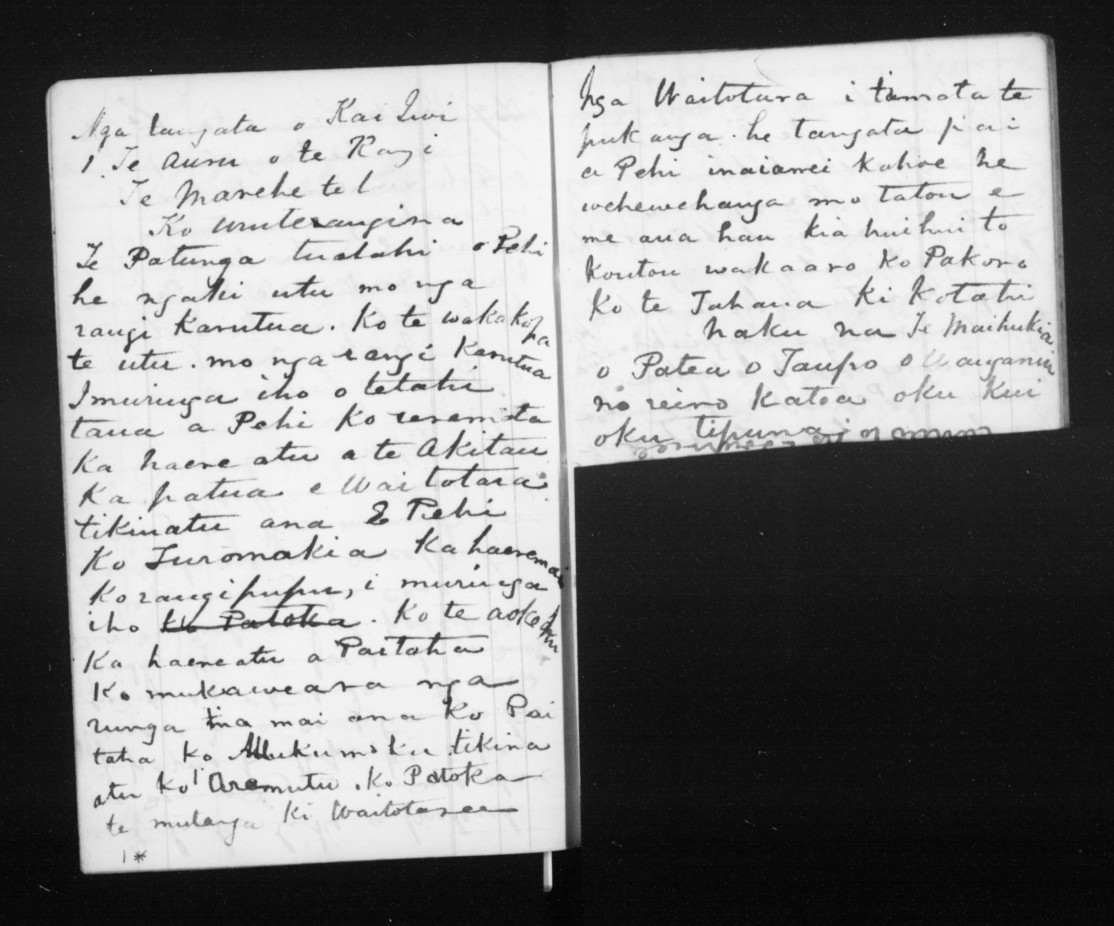 Nga tangata o Kai Iwi
1. Te Auru o te Rangi
Te Manehetel
Ko wuterangina
Te Patunga tuatahi o Pehi
he ngaki utu mo nga
rangi Karutua. Ko te wakakopa
te utu. mo nga rangi Karutua
I muringa iho o tetahi
taua a Pehi Ko reremota
Ka haere atu a te Akitau
Ka patua e Waitotara
tikinatu ana E Pehi
Ko Turomakia Ka haeremai
Korangipupu, i muringa
iho Ko Patoka. Ko te aokehu
Ka haereatu a Paitaha
Ko mukaweara nga
runga ina mai ana Ko Pai
taha ko Mukumoku tikina
atu ko Aremutu. Ko Patoka
te mutanga Ki Waitotara
1 *
Nga Waitotara i timata te
pukanga. he tangata pai
a Pehi inaianei Kahore he
wehewehanga mo tatou e
me aua hau kia huihui to
Koutou wakaaro Ko Pakoro
Ko te Tahana Ki Kotahi
Naku na Te Maihukia
o Patea o Taupo o Wanganui
no reino Katoa oku Kui
oku tipuna